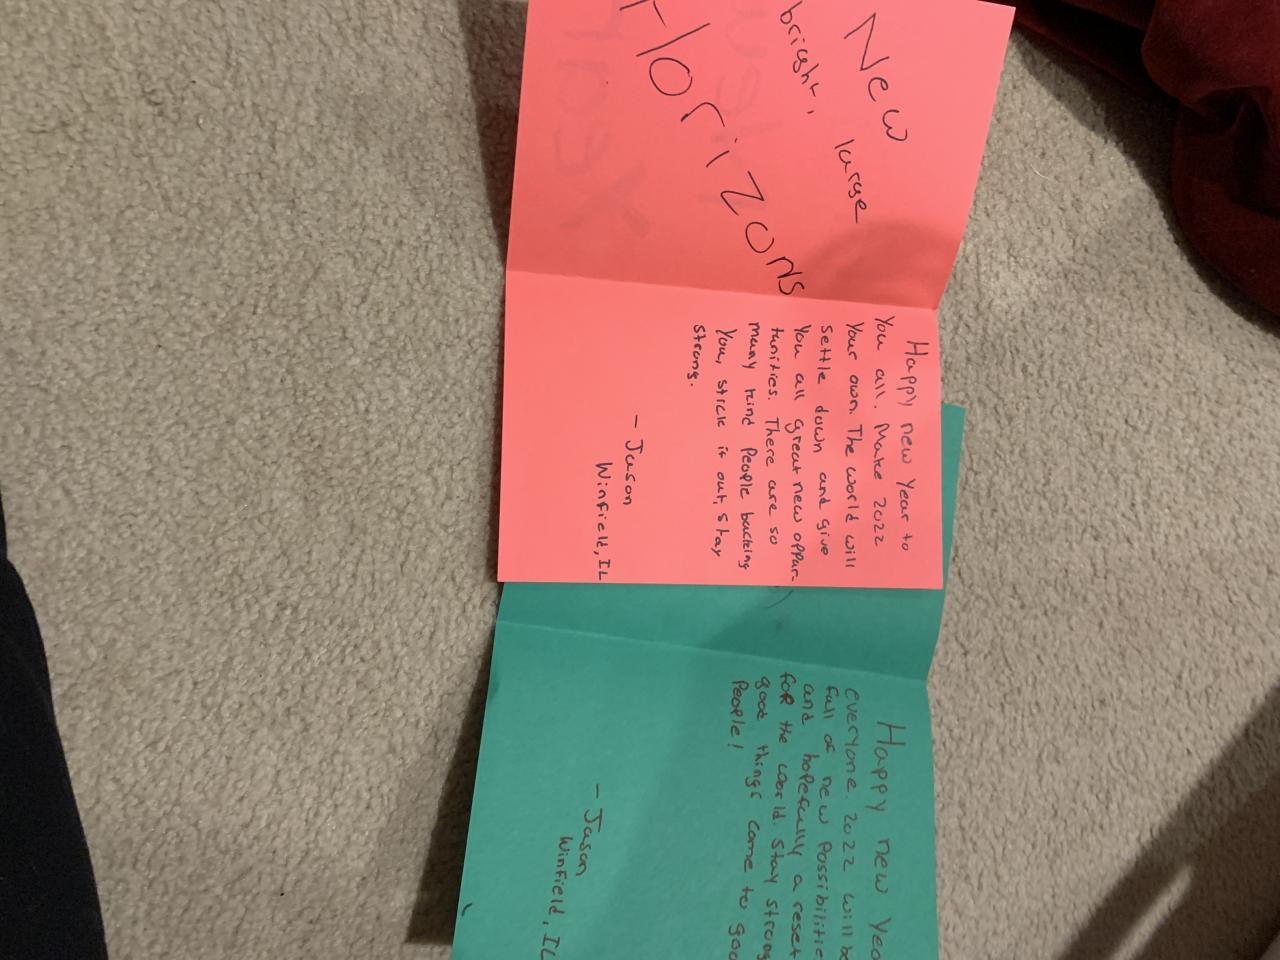 New
bright, large
Horizons
Happy new year to
you all. Make 2022
your own. The world will
settle down and give
you all great new oppor-
tunities. There are so
many kind people backing
you, stick it out, stay
strong.
- Jason
Winfield, IL
Happy new Yea
everyone. 2022 will be
full of new possibilitie
and hopefully a reset
for the world. Stay strong
good things come to goo
people!
- Jason
Winfield, IL